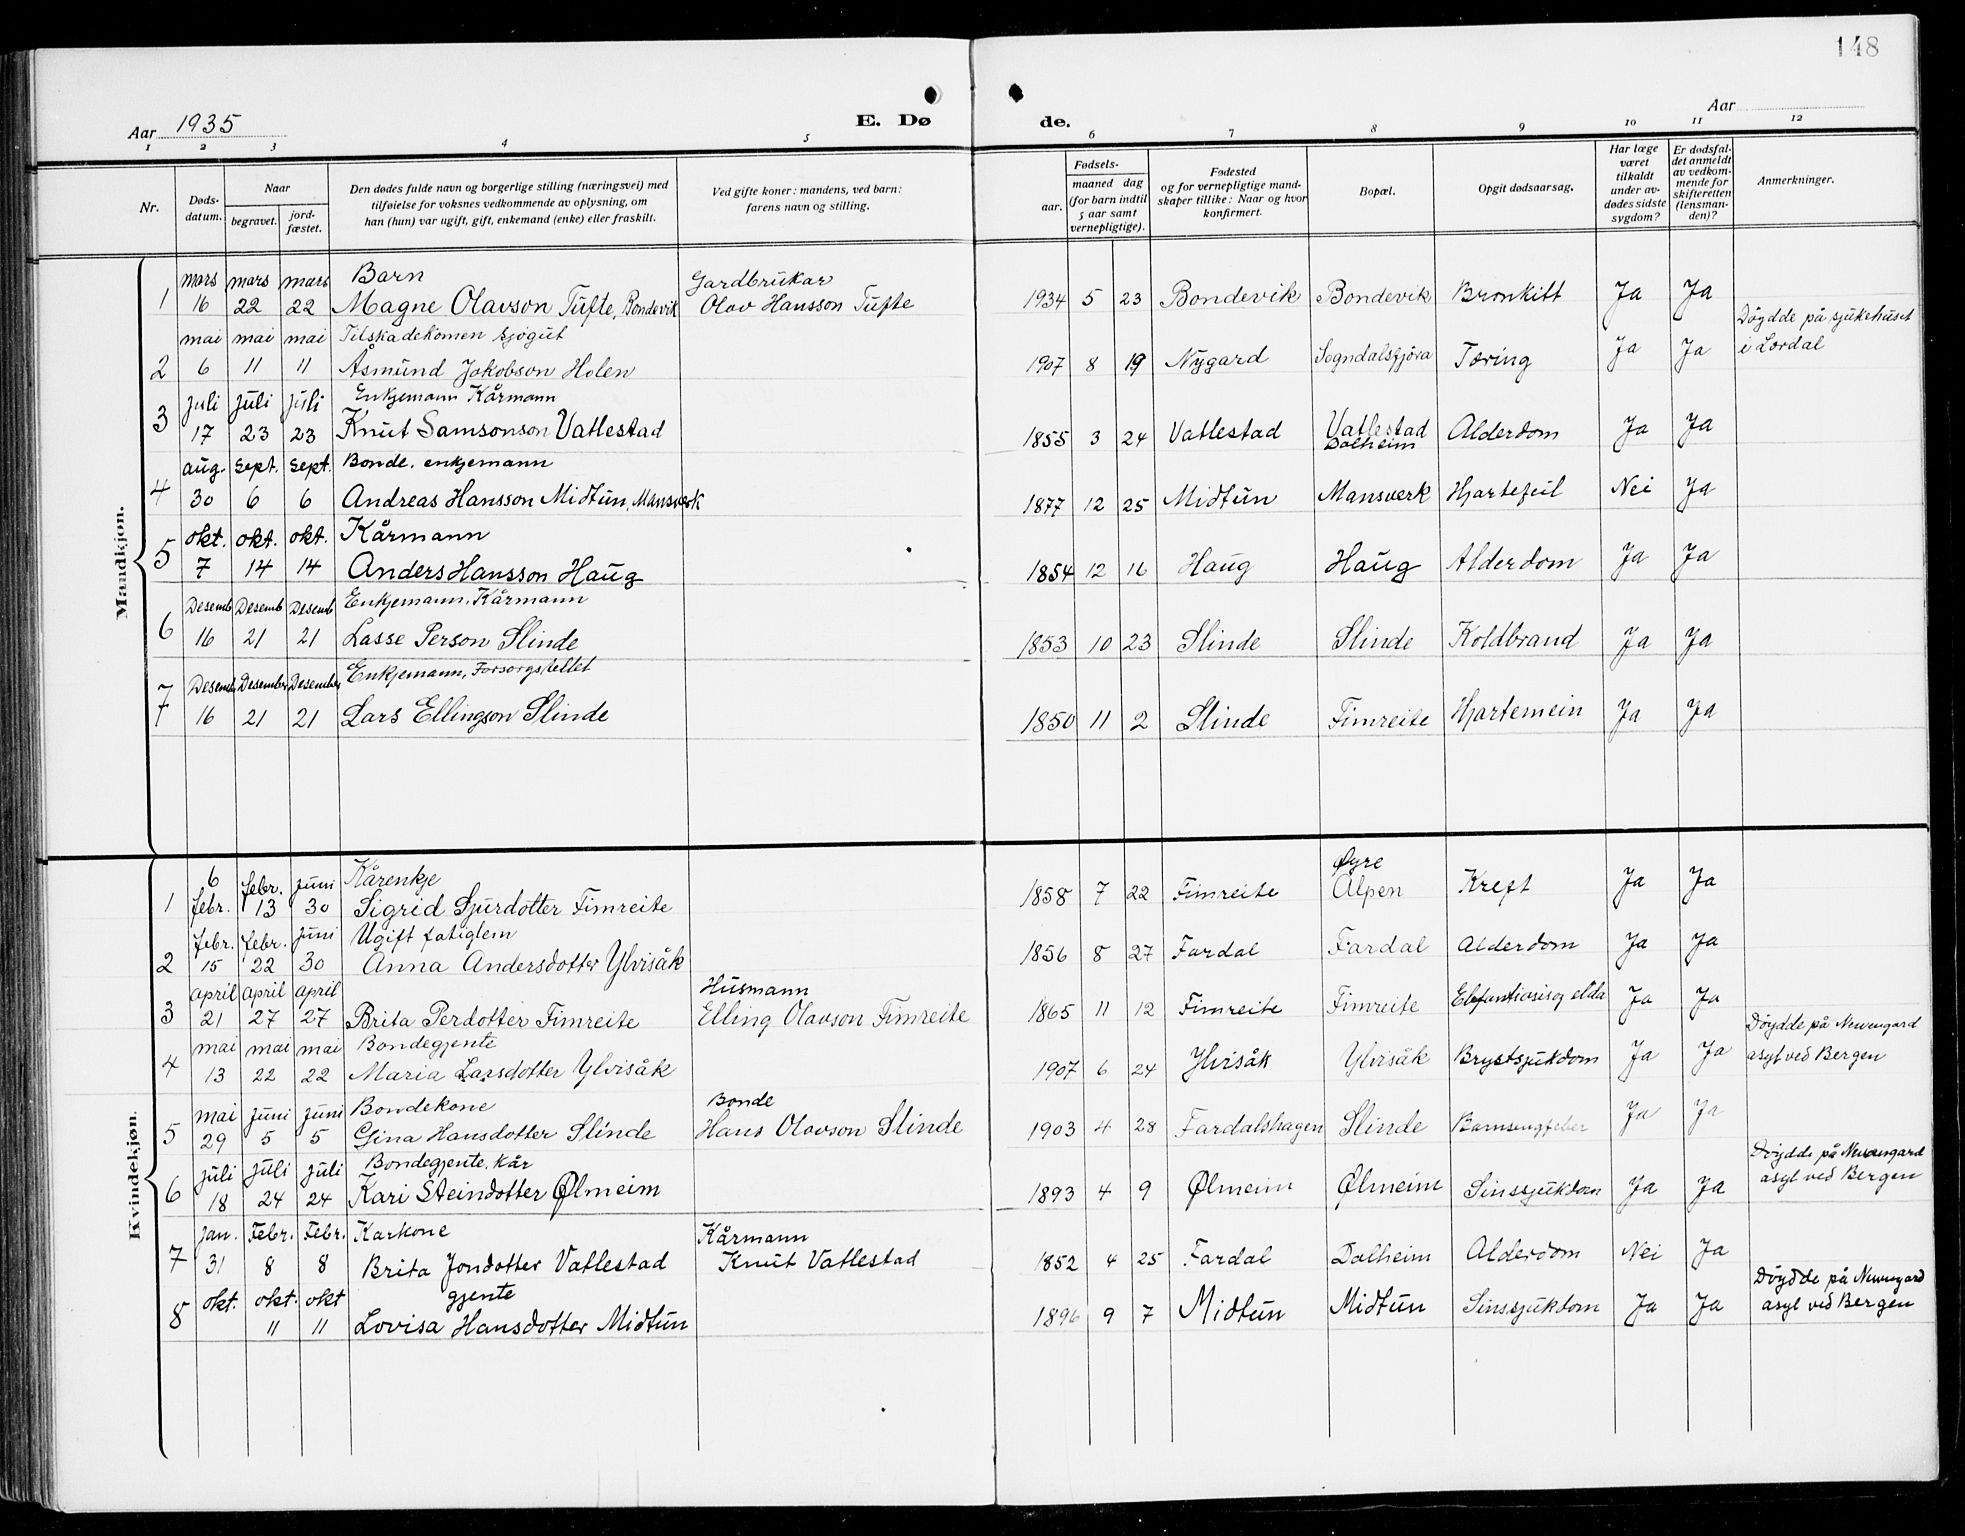 148
Aar 1935
E. Dø
de.
Aar
1 2 3 4 5 6 7 8 9 10 11 12
Nr.
Døds-
datum.
Naar
begravet.
jord-
fæstet.
Den dødes fulde navn og borgerlige stilling (næringsvei) med
tilføielse for voksnes vedkommende av oplysning, om
han (hun) var ugift, gift, enkemand (enke) eller fraskilt.
Ved gifte koner: mandens, ved barn:
farens navn og stilling.
Fødsels-
aar.
maaned dag
(for barn indtil
5 aar samt
vernepligtige).
Fødested
og for vernepligtige mand-
skaper tillike: Naar og hvor
konfirmert.
Bopæl.
Opgit dødsaarsag.
Har læge
været
tilkaldt
under av-
dødes sidste
sygdom?
Er dødsfal-
det anmeldt
av vedkom-
mende for
skifteretten
(lensman-
den)?
Anmerkninger.
Mandkjøn.
mars mars mars Barn Gardbrukar
1 16 22 22 Magne Olavson Tufte, Bondevik Olav Hansson Tufte 1934 5 23 Bondevik Bondevik Bronkitt Ja Ja
mai mai mai Tilskadekomen sjøgut Døydde på sjukehuset
2 6 11 11 Åsmund Jakobson Holen 1907 8 19 Nygard Sogndalsfjøra Tæring Ja Ja i Lærdal
juli juli juli Enkjemann Kårmann
3 17 23 23 Knut Samsonson Vatlestad 1855 3 24 Vatlestad Vatlestad Alderdom Ja Ja
Dalheim
aug. sept. sept. Bonde. enkjemann
4 30 6 6 Andreas Hansson Midtun, Mansverk 1877 12 25 Midtun Mansverk Hjartefeil Nei Ja
okt. okt. okt. Kårmann
5 7 14 14 Anders Hansson Haug 1854 12 16 Haug Haug Alderdom Ja Ja
Desemb Desemb Desemb Enkjemann, Kårmann
6 16 21 21 Lasse Person Slinde 1853 10 23 Slinde Slinde Koldbrand Ja Ja
Desemb Desember Desember Enkjemann, Forsorgstellet
7 16 21 21 Lars Ellingson Slinde 1850 11 2 Slinde Fimreite Hjartemein Ja Ja
Kvindekjøn.
6 febr. juni Kårenkje Øyre
1 febr. 13 30 Sigrid Sjurdotter Fimreite 1858 7 22 Fimreite Alpen Kreft Ja Ja
febr. febr. juni Ugift fatiglem
2 15 22 30 Anna Andersdotter Ylvisåk 1856 8 27 Fardal Fardal Alderdom Ja Ja
april april april Husmann
3 21 27 27 Brita Perdotter Fimreite Elling Olavson Fimreite 1865 11 12 Fimreite Fimreite Elefantiasis og elda Ja Ja
mai mai mai Bondegjente Døydde på Nevengard
4 13 22 22 Maria Larsdotter Ylvisåk 1907 6 24 Ylvisåk Ylvisåk Brystsjukdom Ja Ja asyl ved Bergen
mai juni juni Bondekone Bonde
5 29 5 5 Gina Hansdotter Slinde Hans Olavson Slinde 1903 4 28 Fardalshagen Slinde Barnsengfeber Ja Ja
juli juli juli Bondegjente. kår Døydde på Nevengard
6 18 24 24 Kari Steindotter Ølmeim 1893 4 9 Ølmeim Ølmeim Sinssjukdom Ja Ja asyl ved Bergen
jan. Febr. Febr. Karkone Kårmann
7 31 8 8 Brita Jondotter Vatlestad Knut Vatlestad 1852 4 25 Fardal Dalheim Alderdom Nei Ja
okt. okt. okt gjente Døydde på Nevengard
8 11 11 Lovisa Hansdotter Midtun 1896 9 7 Midtun Midtun Sinssjukdom Ja Ja asyl ved Bergen